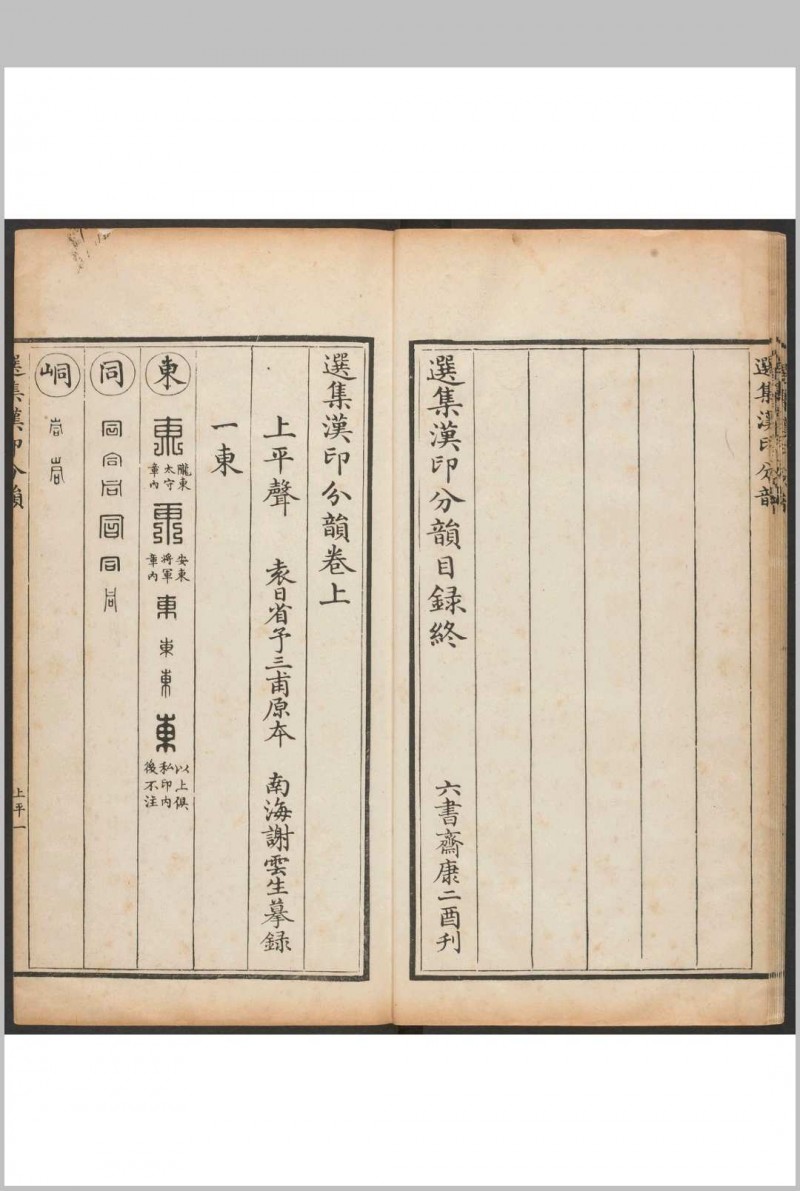 選集漢印分韻
選集漢印分韻目録終
六書齋康二酉刋
選集漢印分韻卷上
上平聲　袁日省予三甫原本　南海謝雲生摹録
一東
東 東 隴東太守章內 東 安東將軍章內 東 東 東 東 以上俱私印內後不注
同 同 同 同 同 同 同
峒 峒 峒
選集漢印分韻
上平一